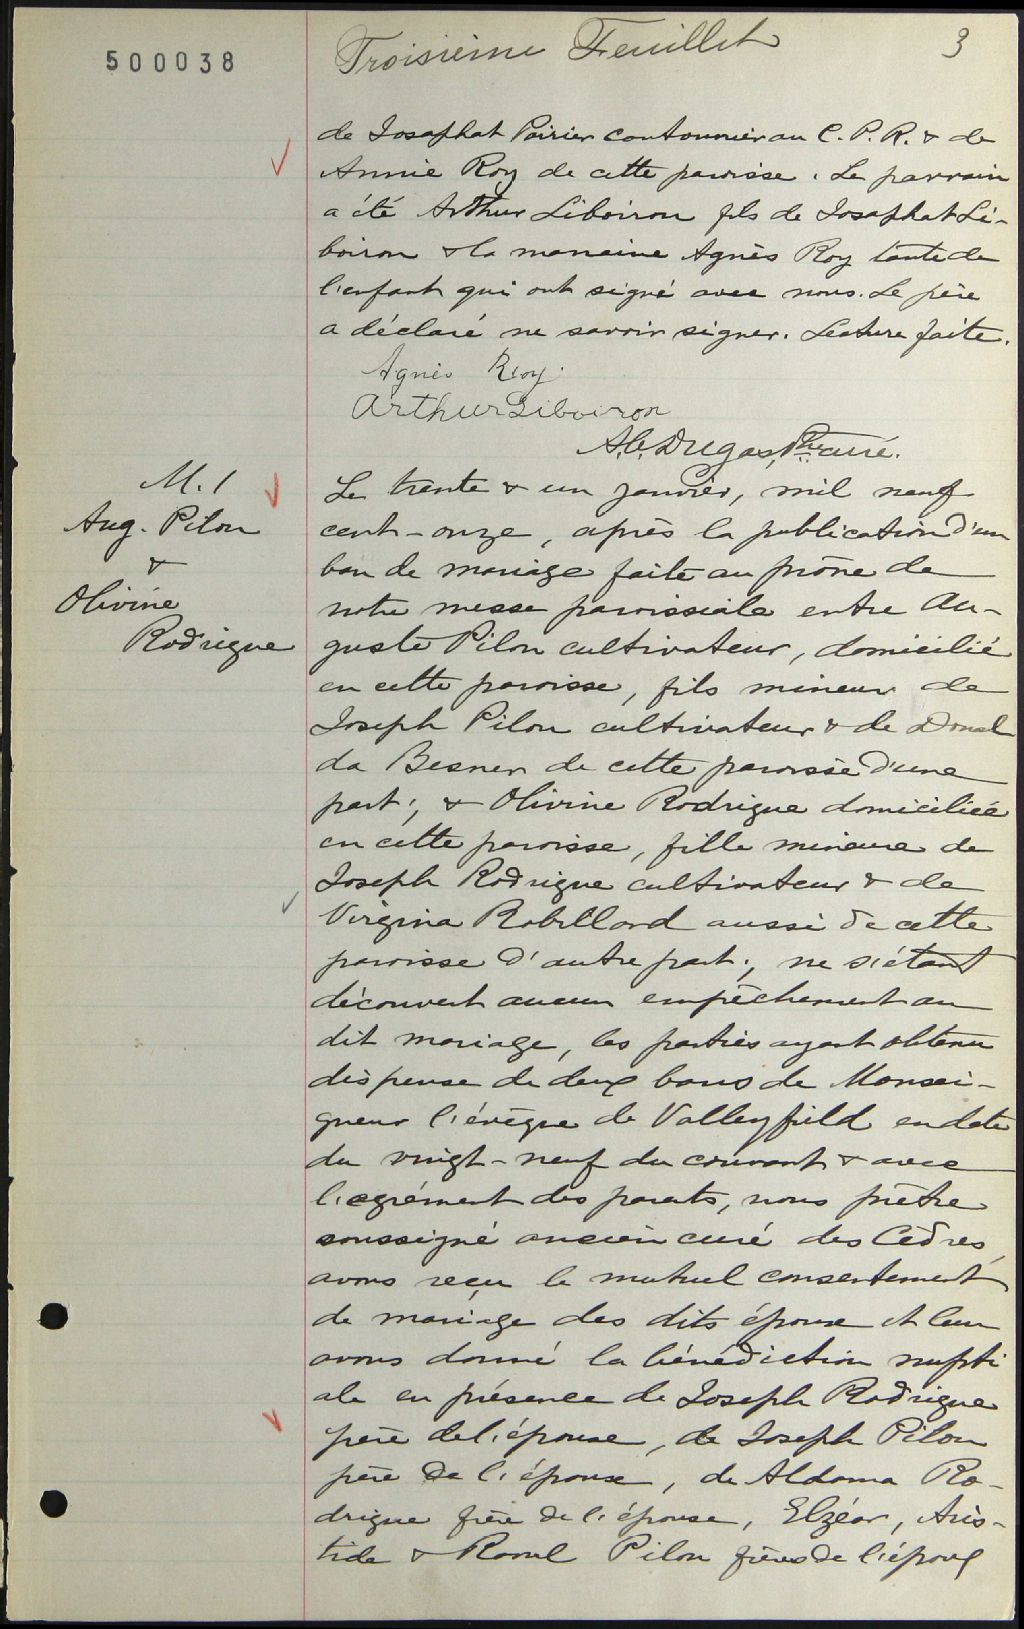 500038
Troisième Feuillet 3
de Josaphat Poirier cantonnier au C. P. R. & de
Annie Roy de cette paroisse. Le parrain
a été Arthur Liboiron fils de Josaphat Li-
boiron & la marraine Agnès Roy tante de
l'enfant qui ont signé avec nous. Le père
a déclaré ne savoir signer. Lecture faite.
Agnès Roy
Arthur Liboiron
Dugas, Ptre curé.
M. 1
Aug. Pilon
&
Olivine
Rodrigue
Le trente & un janvier, mil neuf
cent-onze, après la publication d'un
ban de mariage faite au prône de
notre messe paroissiale entre Au-
guste Pilon cultivateur, domicilié
en cette paroisse, fils mineur de
Joseph Pilon cultivateur & de Donal
da Besner de cette paroisse d'une
part; & Olivine Rodrigue domiciliée
en cette paroisse, fille mineure de
Joseph Rodrigue cultivateur & de
Virgina Robillard aussi de cette
paroisse d'autre part; ne s'étant
découvert aucun empêchement au
dit mariage, les parties ayant obtenu
dispense de deux bans de Monsei-
gneur l'évêque de Valleyfield en date
du vingt-neuf du courant & avec
l'agrément des parents, nous prêtre
soussigné ancien curé des Cèdres
avons reçu le mutuel consentement
de mariage des dits époux et leur
avons donné la bénédiction nupti
ale en présence de Joseph Rodrigue
père de l'épouse, de Joseph Pilon
père de l'époux, de Aldama Ro-
drigue frère de l'épouse, Elzéar, Aris-
tide & Raoul Pilon frères de l'époux